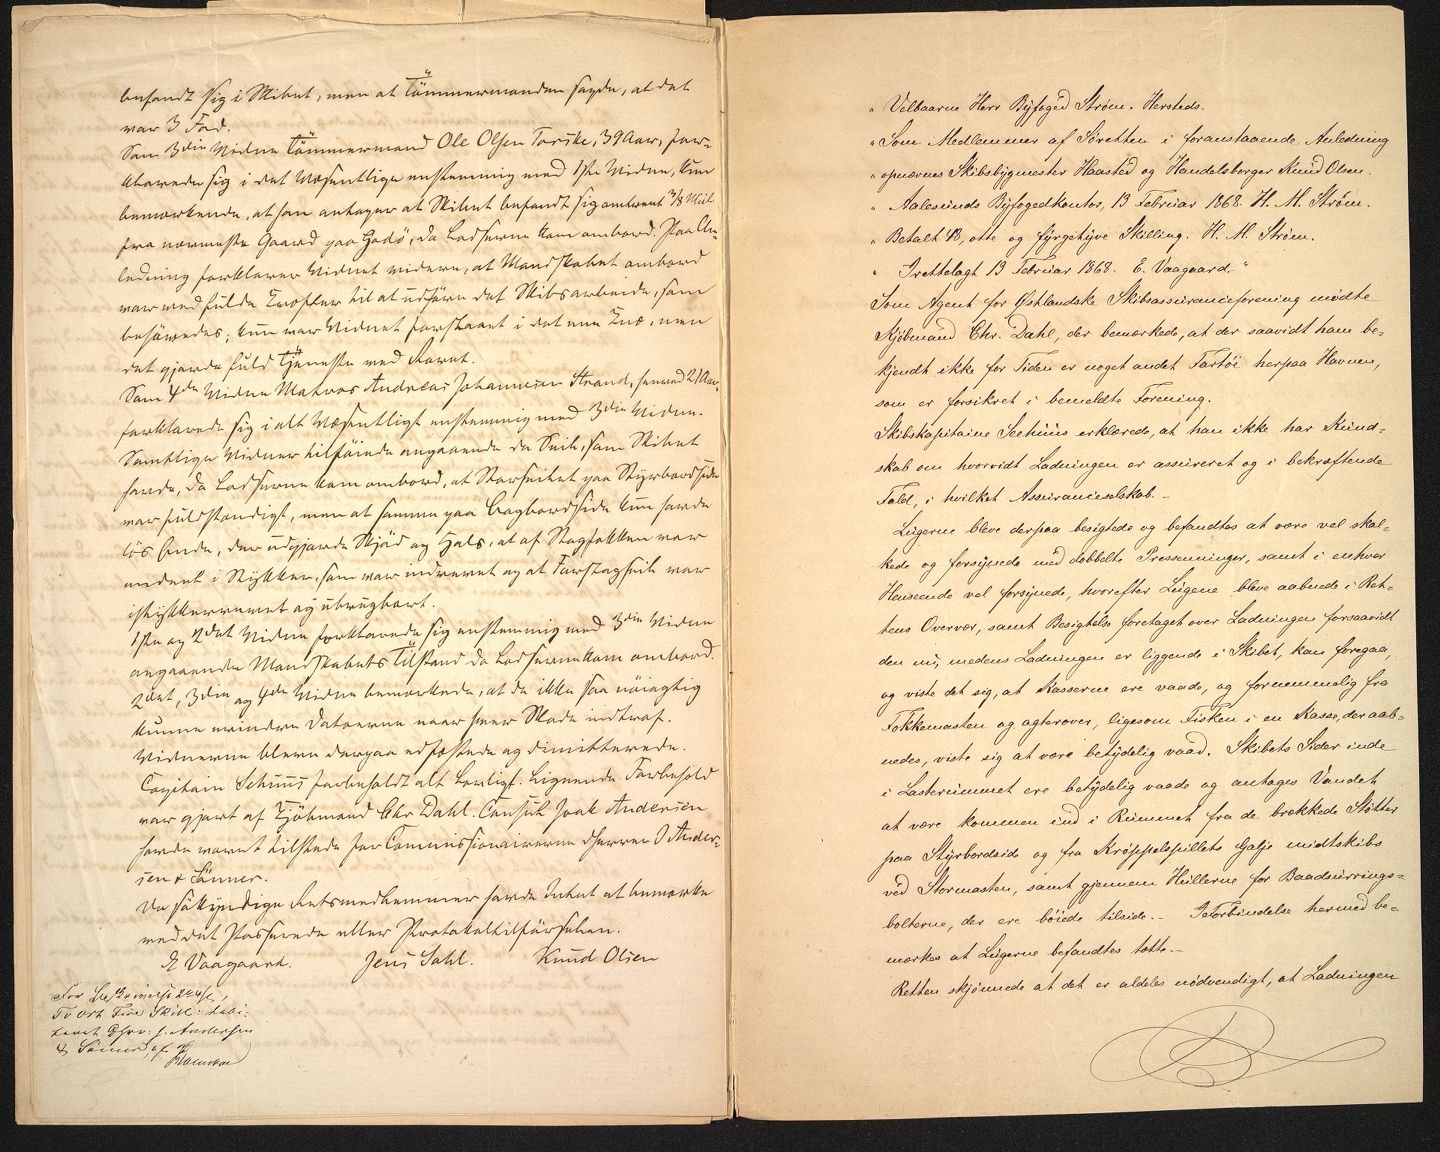 befandt sig i Skibet, men at Tömmermanden sagde, at det
var 3 Fod.
Som 3die Vidne Tömmermand Ole Olsen Torske, 39 Aar, for-
klarede sig i det Væsentlige enstemmig med 1ste Vidne, kun
bemærkende, at han antager at Skibet befandt sig omtrent 3/8 Miil
fra nærmeste Gaard paa Godö, da Lodserne kom ombord. Paa An-
ledning forklarer Vidnet videre, at Mandskabet ombord
var ved fulde Kræfter til at udföre det Skibsarbeide, som
behövedes; kun var Vidnet forslaaet i det ene Knæ, men
det gjorde fuld Tjeneste med Roret.
Som 4de Vidne Matros Andreas Johannesen Strand, henved 21 Aar,
forklarede sig i alt Væsentligt enstemmig med 3die Vidne.
Samtlige Vidner tilföiede angaaende de Seile, som Skibet
havde, da Lodserne kom ombord, at Storseilet paa Styrbordside
var fuldstændigt, men at samme paa Bagbordside kun havde
lös Ende, der udgjorde Skjöd og Hals, at af Stagfokken var
endeel i Stykker, som var indrevet og at Forstagseil var
istykkerrevet og ubrugbart.
1ste og 2det Vidne forklarede sig enstemmig med 3die Vidne
angaaende Mandskabets Tilstand da Lodserne kom ombord.
2det, 3die og 4de Vidne bemærkede, at de ikke saa nöiagtig
kunne erindre Datoerne naar hver Skade indtraf.
Vidnerne bleve derpaa edfæstede og dimitterede.
Capitain Sehuus forbeholdt alt Lovligt. Lignende Forbehold
var gjort af Kjöbmand Chr Dahl. Consul Joak Andersen
havde været tilstede for Commissionairerne Herrer J Ander-
sen & Sönner.
De sökyndige Retsmedlemmer havde Intet at bemærke
ved det Passerede eller Protokoltilförselen.
E Vaagaard. Jens Dahl. Knud Olsen
To Ort Fire Skill:
& Sönner, af
" Velbaarne Herr Byfoged Strøm. Hersteds.
" Som Medlemmer af Søretten i foranstaaende Anledning
" opnævnes Skibsbygmester Haasted og Handelsborger Knud Olsen.
" Aalesunds Byfogedkontor, 13 Februar 1868. H. M. Strøm.
" Betalt 48, otte og fyrgetyve Skilling. H. M. Strøm.
" Irettelagt 13 Februar 1868. E. Vaagaard. "
Som Agent for Østlandske Skibsassuranceforening mødte
Kjøbmand Chr. Dahl, der bemærkede, at der saavidt ham be-
kjendt ikke for Tiden er noget andet Fartøi herpaa Havnen,
som er forsikret i bemeldte Forening.
Skibskapitaine Seehuus erklærede, at han ikke har Kund-
skab om hvorvidt Ladningen er assureret og i bekræftende
Fald, i hvilket Assuranceselskab. -
Lugerne bleve derpaa besigtede og befandtes at være vel skal-
kede og forsynede med dobbelte Presenninger, samt i enhver
Henseende vel forsynede, hvorefter Lugene bleve aabnede i Ret-
tens Overvær, samt Besigtelse foretaget over Ladningen forsaavidt
den nu, medens Ladningen er liggende i Skibet, kan foregaa,
og viste det sig, at Kasserne ere vaade, og fornemmelig fra
Fokkemasten og agterover, ligesom Fisken i en Kasse, der aab-
nedes, viste sig at være betydelig vaad. Skibets Sider inde
i Lasterummet ere betydelig vaade og antages Vandet,
at være kommen ind i Rummet fra de brækkede Støtter
paa Styrbordside og fra Krøppelspillets Galje midtskibs
ved Stormasten, samt gjennem Hullerne for Baadsurrings-
bolterne, der ere bøiede tilside. - I Forbindelse hermed be-
mærkes at Lugerne befandtes tætte. -
Retten skjønnede at det er aldeles nødvendigt, at Ladningen